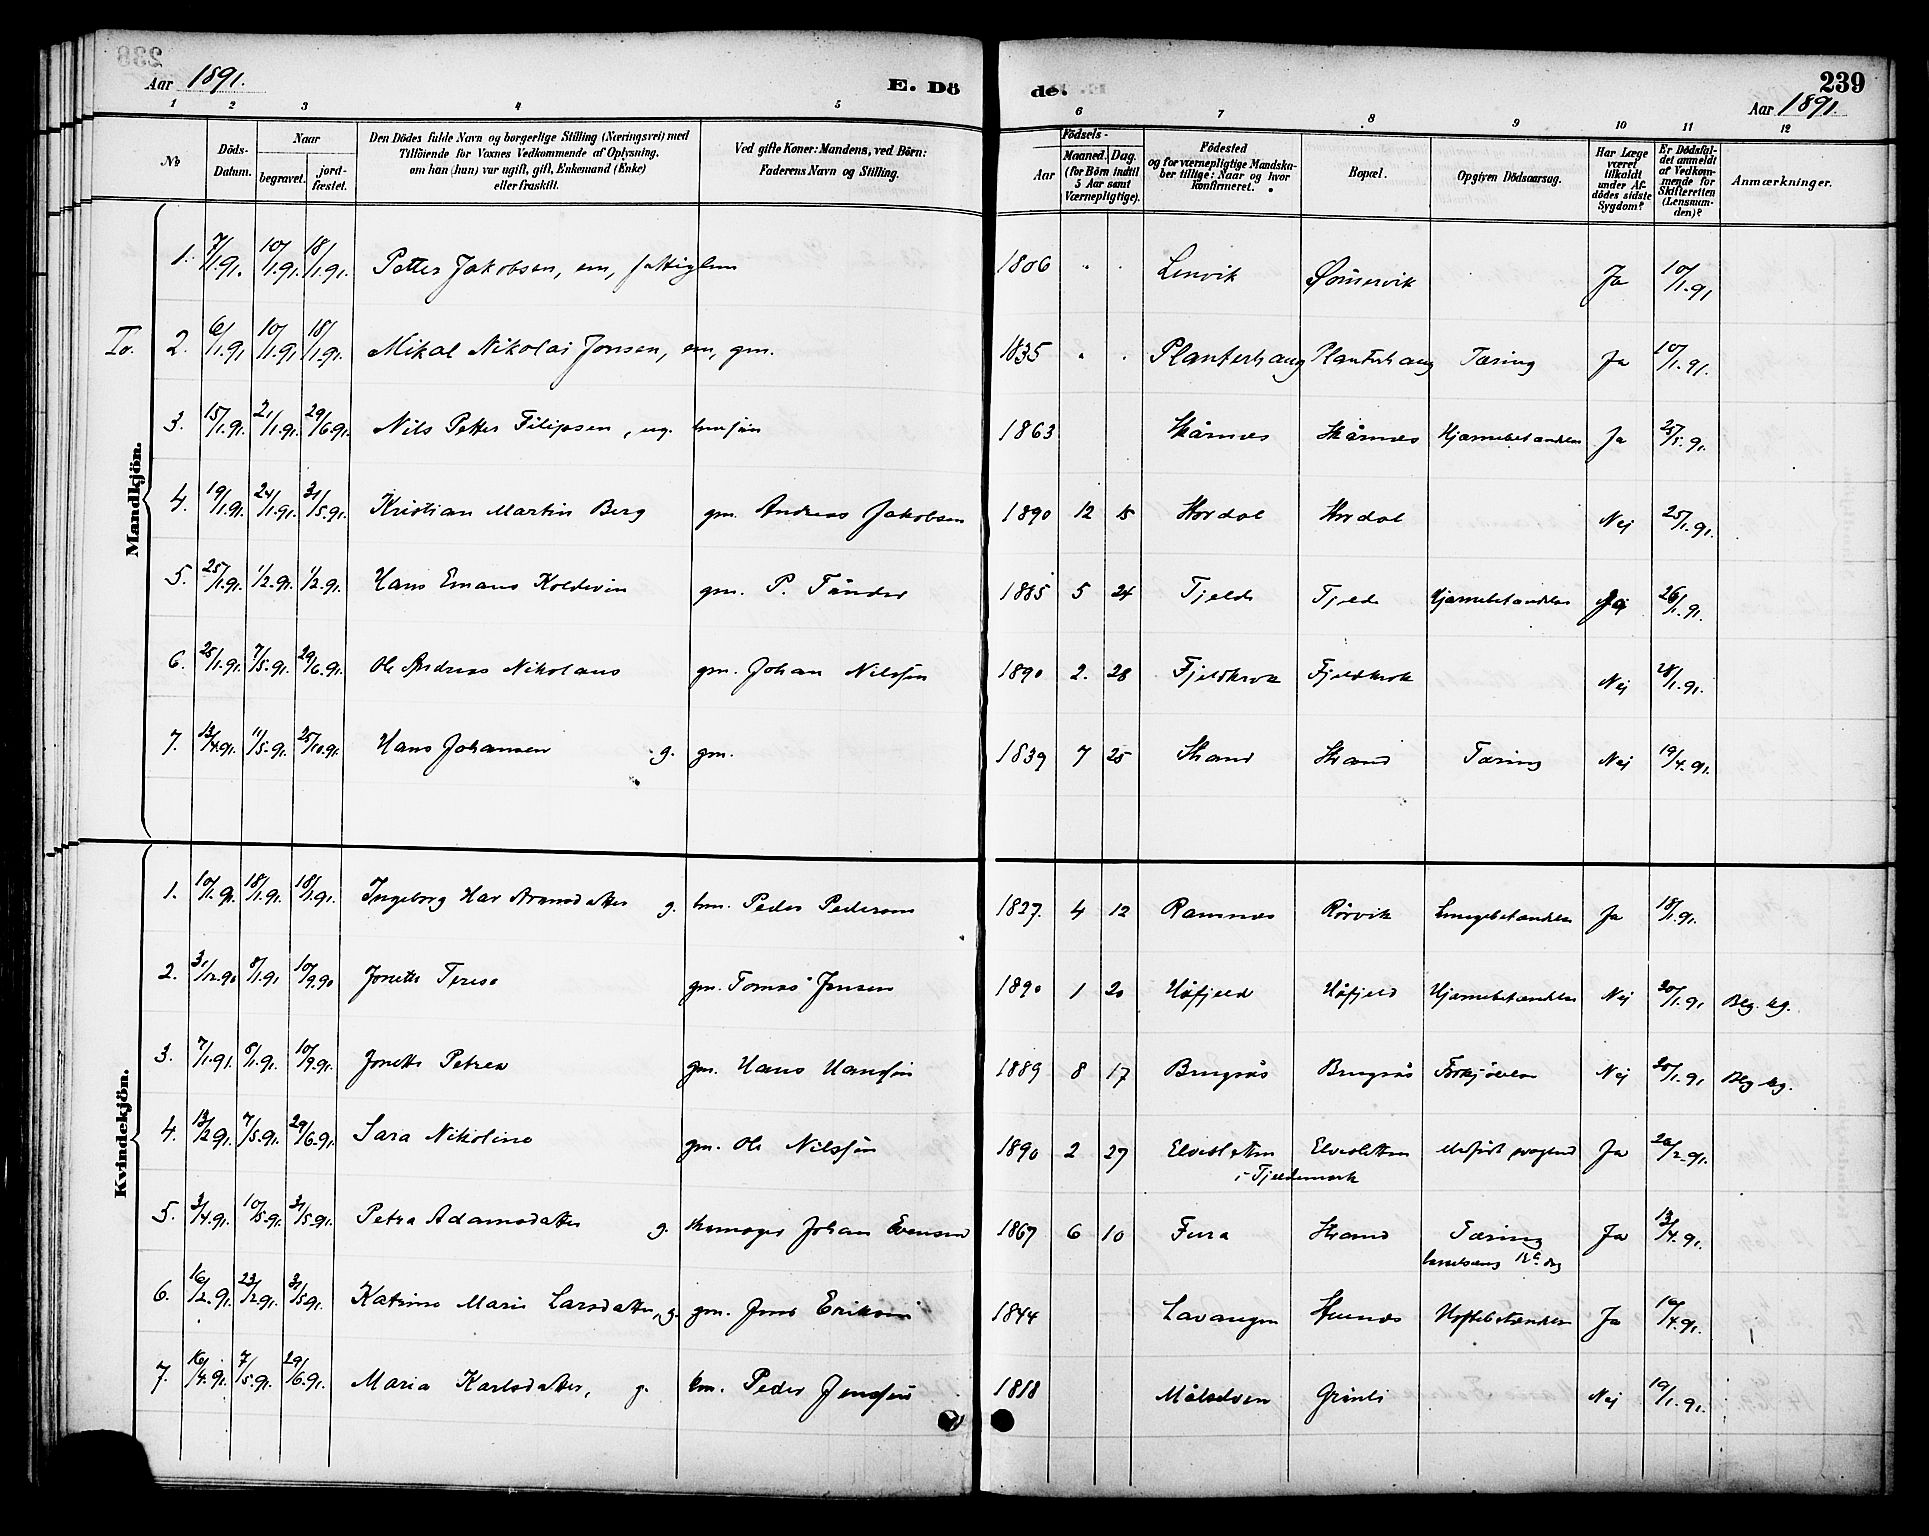 239
Aar 1891. E. Dö de. Aar 1891.
1 2 3 4 5 6 7 8 9 10 11 12
No
Döds-Datum.
Naar
begravet. jord-fæstet.
Den Dödes fulde Navn og borgerlige Stilling (Næringsvei) med Tilföiende for Voxnes Vedkommende af Oplysning, om han (hun) var ugift, gift, Enkemand (Enke) eller fraskilt.
Ved gifte Koner: Mandens, ved Börn: Faderens Navn og Stilling.
Födsels-
Aar Maaned. Dag. (for Börn indtil 5 Aar samt Værnepligtige).
Födested og for værnepligtige Mandskaber tillige: Naar og hvor konfirmeret.
Bopæl.
Opgiven Dödsaarsag.
Har Læge været tilkaldt under Afdödes sidste Sygdom?
Er Dödsfaldet anmeldt af Vedkommende for Skifteretten (Lensmanden)?
Anmærkninger.
Mandkjön.
1. 7/1.91. 10/1.91. 18/1.91. Petter Jakobsen, em, fattiglem 1806 " " Lenvik Ja 10/1.91
2. 6/1.91 10/1.91 18/1.91. Mikal Nikolai Jonsen, em, gm. 1835 " " Planterhaug Planterhaug Tæring Ja 10/1.91.
3. 15/1.91. 21/1.91. 29/6.91. Nils Petter Filipsen, ug. 1863 Skårnes Skårnes Hjærnebetændelse Ja 25/5.91.
4. 19/1.91. 24/1.91. 31/5.91. Kristian Martin Berg gm. Andreas Jakobsen 1890 12 15 Stordal Stordal Nej 25/1.91.
5. 25/1.91. 1/2.91. 1/2.91. Hans Emaus Koldevin gm. P. Tånder 1885 5 24 Tjeld Tjeld Hjærnebetændelse Ja 26/1.91.
6. 25/1.91. 7/5.91. 29/6.91. Ole Andreas Nikolaus gm. Johan Nilsson 1890 2. 28 Fjeldkrok Fjeldkrok Nej 28/1.91.
7. 13/4.91. 11/5.91. 25/10.91. Hans Johansen g. gm. 1839 7 25 Strand Strand Tæring Nej 19/4.91.
Kvindekjön.
1. 10/1.91. 18/1.91. 18/1.91. Ingeborg Aronsdatter g. hm. Peder Pedersen 1827. 4 12 Ramnes Rørvik Lungebetændelse Ja 18/1.91.
2. 31/12.90 8/1.91 10/9.90 Jonette Terese gm. Tomas Jensen 1890 1 20 Håfjeld Håfjeld Hjærnebetændelse Nej 20/1.91 Blg. kg.
3. 7/1.91 8/1.91. 10/9.91. Jonette Petrea gm. Hans Hansson 1889 8 17 Nej 20/1.91 Blg. kg.
4. 13/2.91. 7/5.91. 29/6.91. Sara Nikoline gm. Ole Nilsson 1890 2 27 Elvesletten Elvesletten Ja 20/2.91.
i Tjeldemark
5. 3/4.91. 10/5.91. 31/5.91. Petra Adamsdatter g. skomager Johan Evensen 1867 6 10 Fura Strand Tæring Ja 13/4.91.
barselseng dag
6. 16/2.91. 23/2.91. 31/5.91. Katrine Marie Larsdatter, g. gm. Jens Erikson 1844 Lavangen Ja 16/4.91.
7. 16/4.91. 7/5.91. 29/6.91. Maria Karlsdatter, g. hm. Peder Jensson 1818 Målselven Grønli Nej 19/1.91.